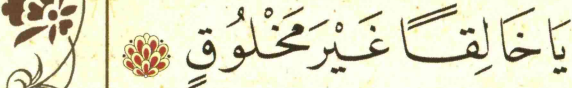 يَا خَالِقًا غَيْرَ مَخْلُوقٍ